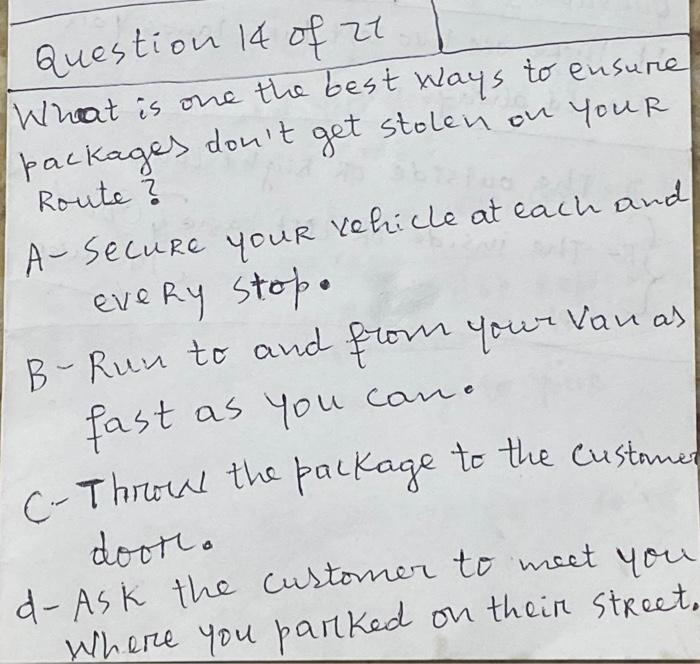 Question 14 of 22
What is one the best ways to ensure
packages don't get stolen on youR
Route?
A- SecuRe youR vehicle at each and
eveRy stop.
B- Run to and from your Van as
fast as you can.
C- Throw the package to the customer
door.
d- Ask the customer to meet you
Where you parked on their stReet.